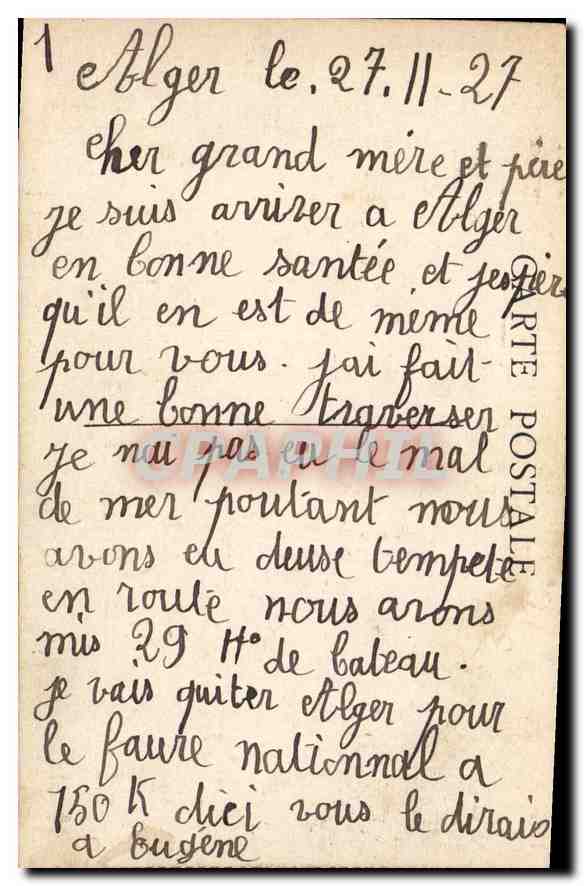 1
Alger le. 27. 11 - 27
Cher grand mère et père
je suis arriver a Alger
en bonne santée et jespère
qu'il en est de même
pour vous. jai fait
une bonne traverser
Je nai pas eu le mal
de mer poutant nous
avons eu deuse tempete
en route nous avons
mis 29 Hº de bateau.
je vais quiter Alger pour
le faure nationnal a
150 K dici vous le dirais
a Eugéne
CARTE POSTALE
CPAPHIL